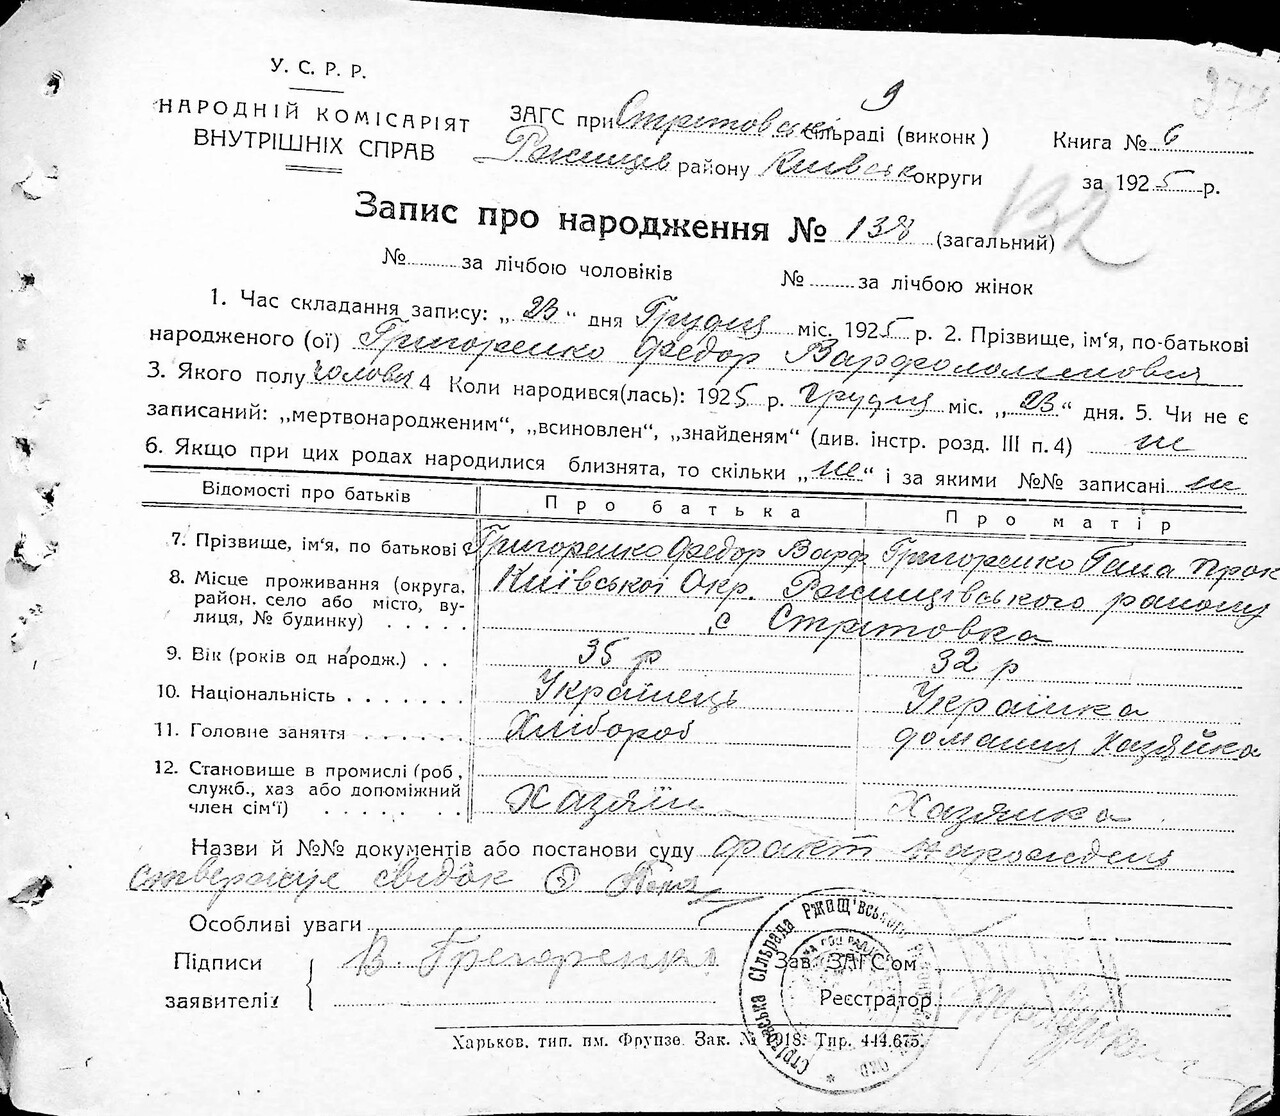 277
У. С. Р. Р.
НАРОДНІЙ КОМІСАРІЯТ
ВНУТРІШНІХ СПРАВ
9
ЗАГС при Стрітовські сільраді (виконк)
Ржищев району Київськ округи
Книга № 6
за 1925 р.
132
Запис про народження № 138 (загальний)
№ за лічбою чоловіків № за лічбою жінок
1. Час складання запису: „23“ дня Грудня міс. 1925 р. 2. Прізвище, ім'я, по-батькові
народженого (ої) Григоренко Федор Варфоламеновия
3. Якого полу чоловіч 4 Коли народився(лась): 1925 р. грудня міс. „23“ дня. 5. Чи не є
записаний: „мертвонародженим“, „всиновлен“, „знайденям“ (див. інстр. розд. III п. 4) ні
6. Якщо при цих родах народилися близнята, то скільки „ні“ і за якими №№ записані ні
Відомості про батьків Про батька Про матір
7. Прізвище, ім'я, по батькові Григоренко Федор Варф Григоренко Гана Прок
8. Місце проживання (округа, Київської Окр. Ржищівського району
район, село або місто, ву-
лиця, № будинку) с Стрітовка
9. Вік (років од народж.) 35 р 32 р
10. Національність Українець Українка
11. Головне заняття Хлібороб домашня хазяйка
12. Становище в промислі (роб,
служб., хаз або допоміжний
член сім'ї) Хазяїн Хазяика
Назви й №№ документів або постанови суду факт народження
стверджує свідок
Особливі уваги
Підписи
заявителів
В. Грегоренко
Зав. ЗАГС'ом
Реєстратор
Стрітовська Сільрада Ржищ'вського
Харьков, тип. им. Фрунзе. Зак. № 1918. Тир. 444.675.